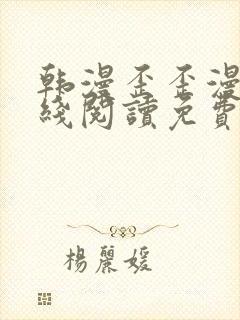 韩漫歪歪漫
綫閱讀免費
楊麗媛